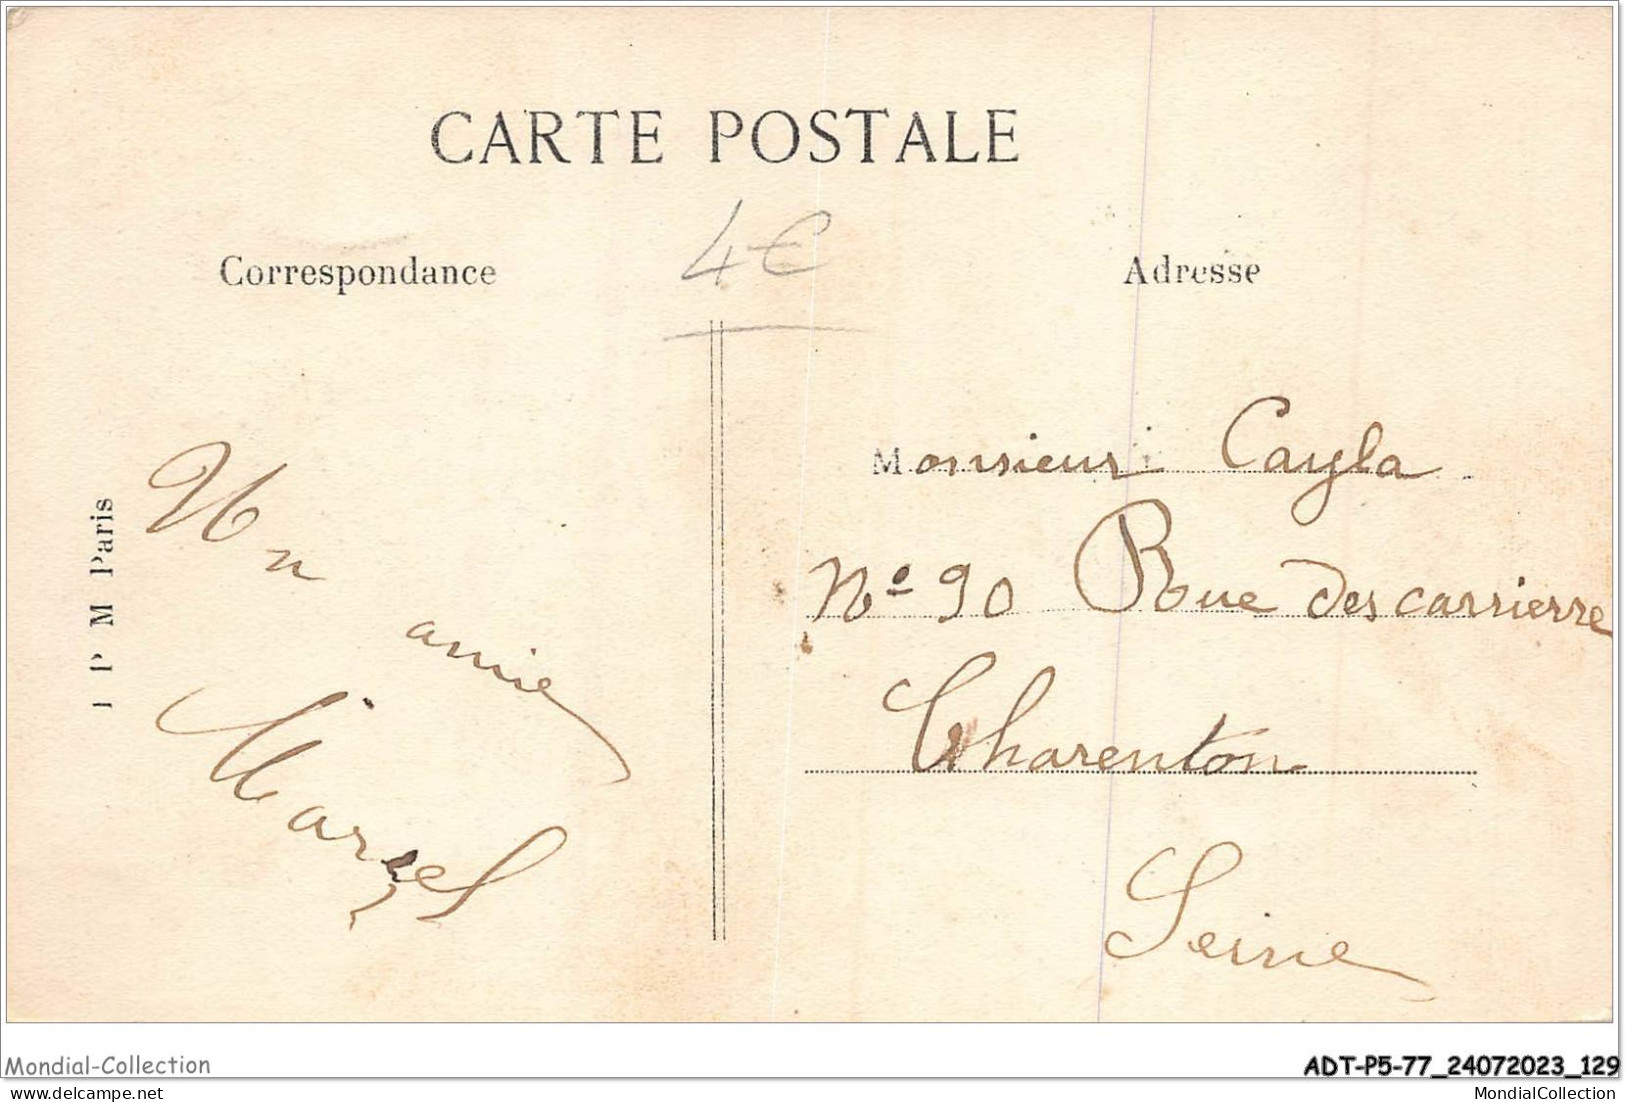 CARTE POSTALE
4€
Correspondance
Adresse
Un
amie
Marcel
I P M Paris
Monsieur Cayla
No 90 Rue des carrierre
Charenton
Seine
Mondial-Collection
ADT-P5-77_24072023_129
MondialCollection